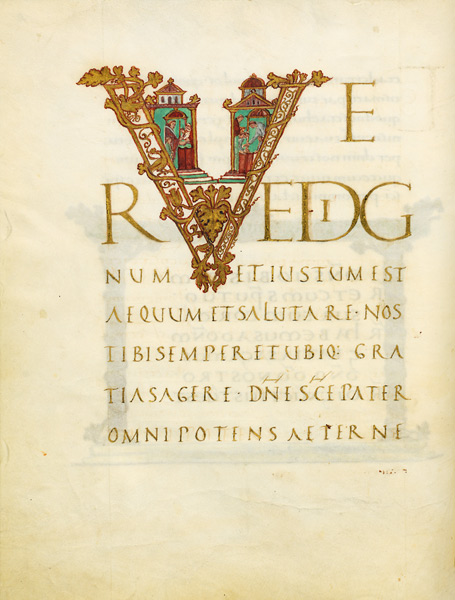 VE
REDIG
NUM ETIUSTUMEST
AEQUUMETSALUTARE·NOS
TIBISEMPERETUBIQ: GRA
TIASAGERE· DN̄ESC̄EPATER
OMNIPOTENSAETERNE